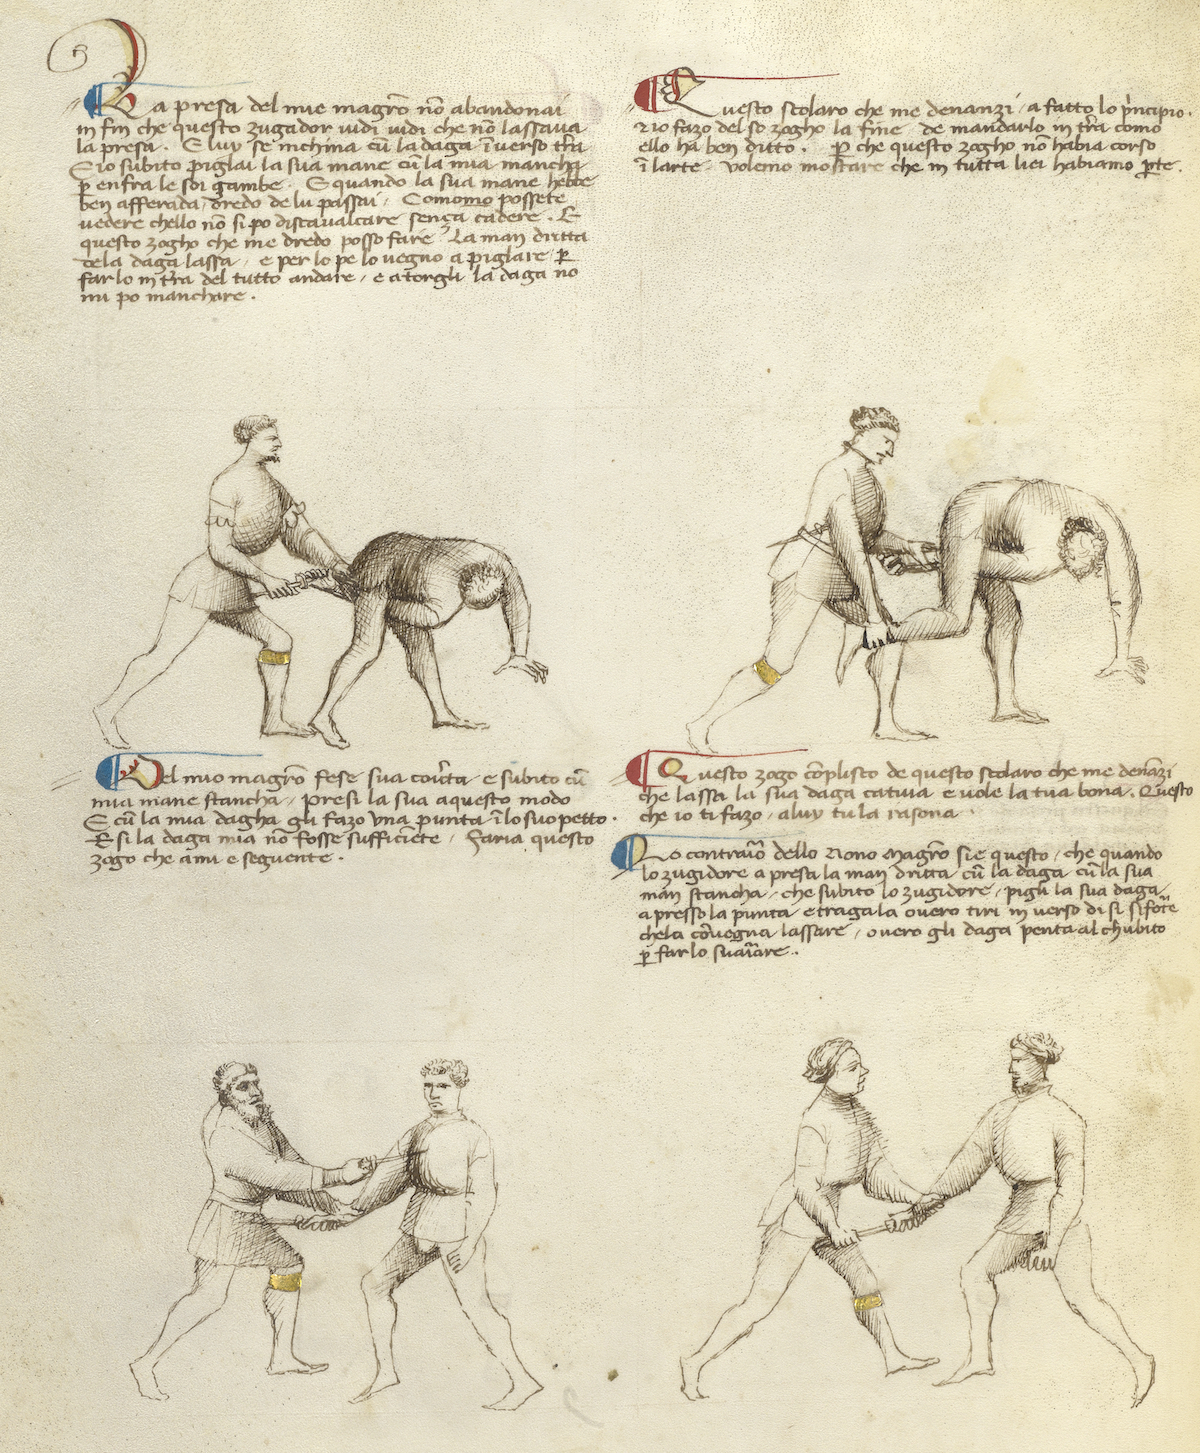 La presa del mie magrō nō abandonai
in fin che questo zugador vidi vidi che nō lassava
la presa. E luy se inchina cū la daga īverso tr̄a
E io subito piglai la sua mane cū la mia mancha
ꝑ enfra le soi gambe. E quando la sua mane hebbe
ben afferada dredo de lu passai. Comomo possete
vedere chello nō si po discavalcare sença cadere. E
questo zogho che me dredo posso fare. La man dritta
dela daga lassa, e per lo pe lo vegno a piglare ꝑ
farlo in tr̄a del tutto andare, e a torgli la daga no
mi po manchare.
Questo scolaro che me denanzi, a fatto lo p̄ncipio.
Et io fazo del so zogho la fine de mandarlo in tr̄a como
ello ha ben ditto. P che questo zogho nō habia corso
ī larte. volemo mostrare che in tutta liei habiamo ꝑte.
Del mio magrō fese sua cov̄ta e subito cū
mia mane stancha, presi la sua a questo modo
E cū la mia dagha gli fazo una punta ī lo suo petto.
E si la daga mia nō fosse sufficiēte, Faria questo
zogo che a mi e seguente.
Questo zogo cōplisco de questo scolaro che me denāzi
che lassa la sua daga cativa e vole la tua bona. Questo
che io ti fazo, a luy tu la rasona.
Lo contrario dello Nono Magrō sie questo, che quando
lo zugadore a presa la man dritta cū la daga cū la sua
man stancha, che subito lo zugadore, pigli la sua daga
apresso la punta e traga la overo tiri in verso di si si forte
che la cōvegna lassare, overo gli daga penta al chubito
ꝑ farlo svariare.